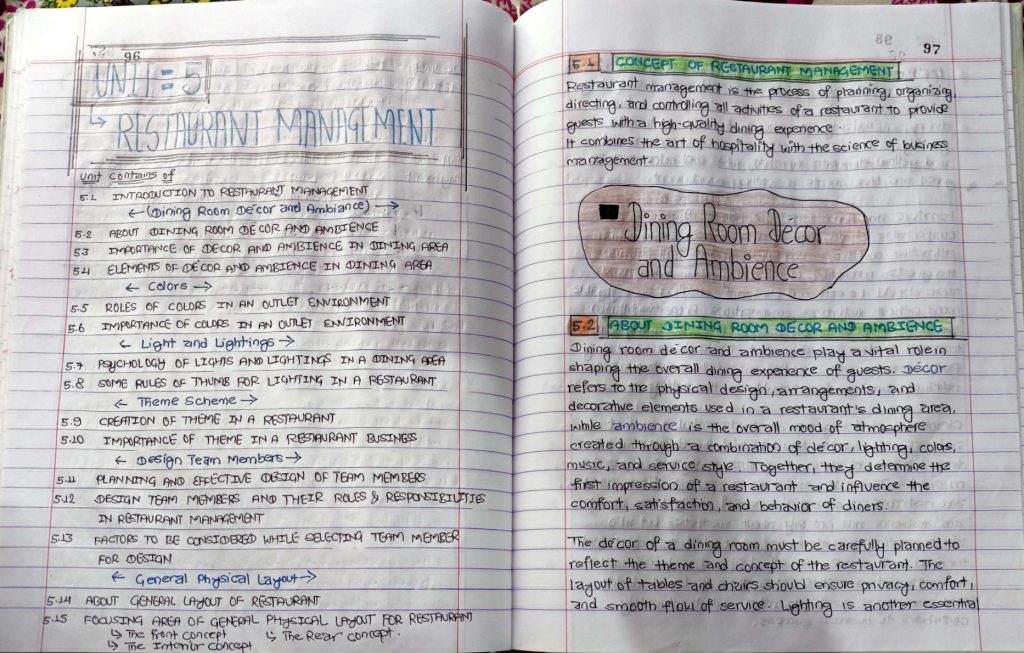 96
UNIT = 5
↳ RESTAURANT MANAGEMENT
Unit contains of
5.1 INTRODUCTION TO RESTAURANT MANAGEMENT
← (Dining Room Décor and Ambiance) →
5.2 ABOUT DINING ROOM DÉCOR AND AMBIENCE
5.3 IMPORTANCE OF DÉCOR AND AMBIENCE IN DINING AREA
5.4 ELEMENTS OF DÉCOR AND AMBIENCE IN DINING AREA
← Colors →
5.5 ROLES OF COLORS IN AN OUTLET ENVIRONMENT
5.6 IMPORTANCE OF COLORS IN AN OUTLET ENVIRONMENT
← Light and Lightings →
5.7 PSYCHOLOGY OF LIGHTS AND LIGHTINGS IN A DINING AREA
5.8 SOME RULES OF THUMB FOR LIGHTING IN A RESTAURANT
← Theme Scheme →
5.9 CREATION OF THEME IN A RESTAURANT
5.10 IMPORTANCE OF THEME IN A RESTAURANT BUSINESS
← Design Team Members →
5.11 PLANNING AND EFFECTIVE DESIGN OF TEAM MEMBERS
5.12 DESIGN TEAM MEMBERS AND THEIR ROLES & RESPONSIBILITIES
IN RESTAURANT MANAGEMENT
5.13 FACTORS TO BE CONSIDERED WHILE SELECTING TEAM MEMBER
FOR DESIGN
← General Physical Layout →
5.14 ABOUT GENERAL LAYOUT OF RESTAURANT
5.15 FOCUSING AREA OF GENERAL PHYSICAL LAYOUT FOR RESTAURANT
↳ The front concept ↳ The Rear concept.
↳ The Interior concept
97
5.1 CONCEPT OF RESTAURANT MANAGEMENT
Restaurant management is the process of planning, organizing,
directing, and controlling all activities of a restaurant to provide
guests with a high-quality dining experience.
It combines the art of hospitality with the science of business
management.
Dining Room Décor
and Ambience
5.2 ABOUT DINING ROOM DÉCOR AND AMBIENCE
Dining room décor and ambience play a vital role in
shaping the overall dining experience of guests. Décor
refers to the physical design, arrangements, and
decorative elements used in a restaurant's dining area,
while ambience is the overall mood of atmosphere
created through a combination of décor, lighting, colors,
music, and service style. Together, they determine the
first impression of a restaurant and influence the
comfort, satisfaction, and behavior of diners.
The décor of a dining room must be carefully planned to
reflect the theme and concept of the restaurant. The
layout of tables and chairs should ensure privacy, comfort,
and smooth flow of service. Lighting is another essential